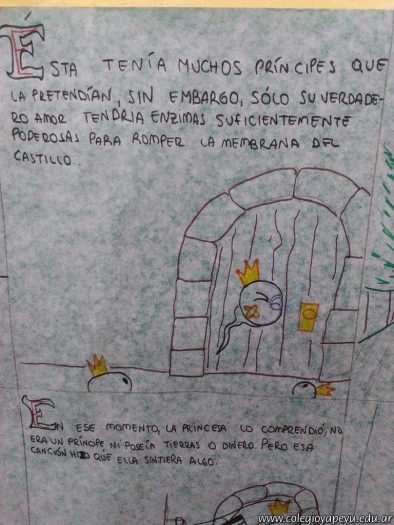 ÉSTA TENÍA MUCHOS PRÍNCIPES QUE
LA PRETENDÍAN, SIN EMBARGO, SÓLO SU VERDADE-
RO AMOR TENDRIA ENZIMAS SUFICIENTEMENTE
PODEROSAS PARA ROMPER LA MEMBRANA DEL
CASTILLO.
EN ESE MOMENTO, LA PRINCESA LO COMPRENDIÓ, NO
ERA UN PRÍNCIPE NI POSEÍA TIERRAS O DINERO. PERO ESA
CANCIÓN HIZO QUE ELLA SINTIERA ALGO.
www.colegioyapeyu.edu.ar